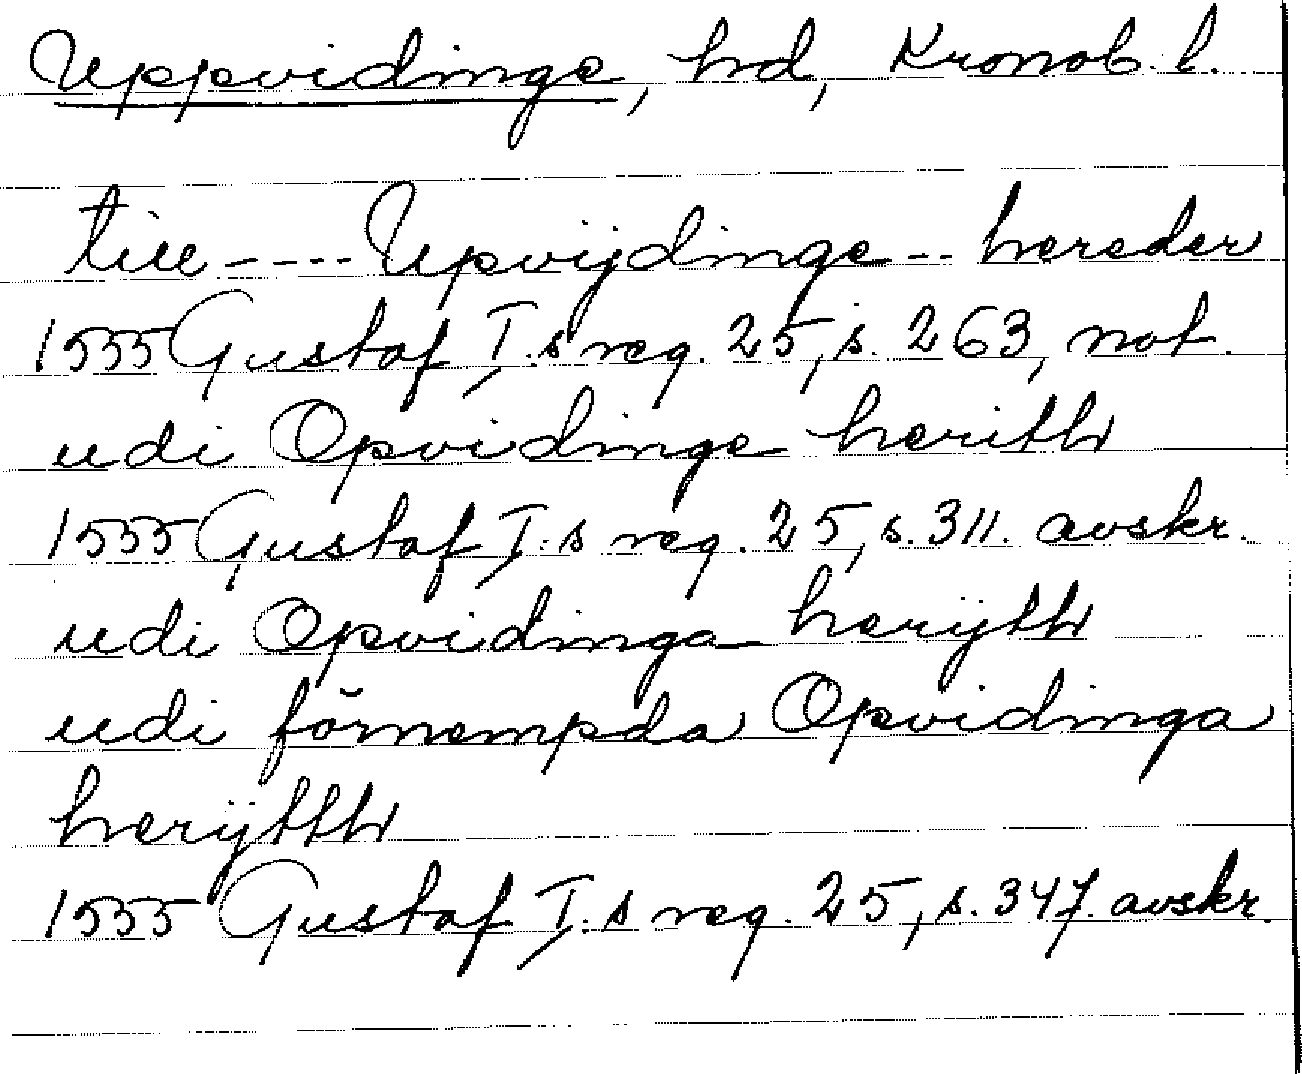 Uppvidinge, hd, Kronob. l.
till ---- Upvijdinge -- hereder
1555 Gustaf I:s reg. 25, s. 263, not.
udi Opvidinge herith
1555 Gustaf I:s reg. 25, s. 311. avskr.
udi Opvidinga herijth
udi förnempda Opvidinga
herijtth
1555 Gustaf I:s reg. 25, s. 347. avskr.